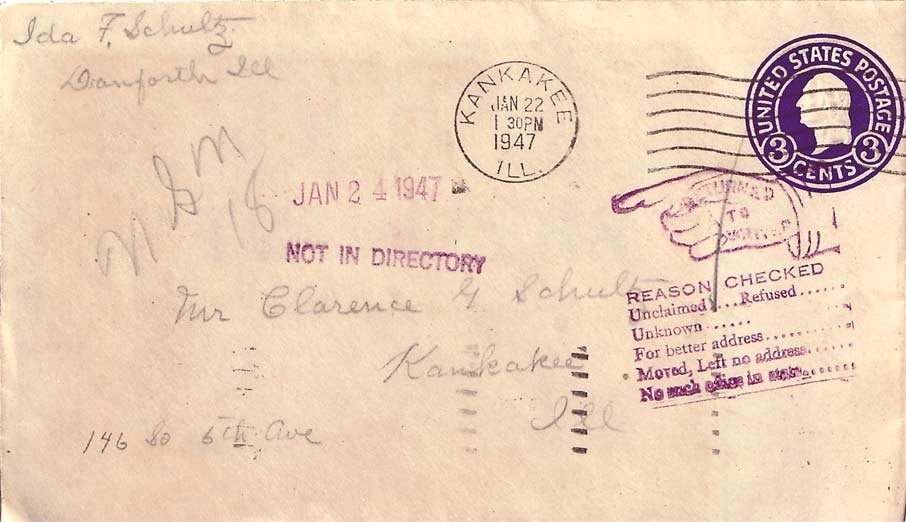 Ida F. Schultz
Danforth Ill
KANKAKEE
JAN 22
1 30PM
1947
ILL.
UNITED STATES POSTAGE
3 CENTS 3
N S M
18
JAN 24 1947
NOT IN DIRECTORY
RETURNED
TO
WRITER
REASON CHECKED
Unclaimed....Refused......
Unknown......
For better address............
Moved, Left no address......
No such office in state......
Mr Clarence G Schultz
Kankakee
Ill
146 So 6th Ave